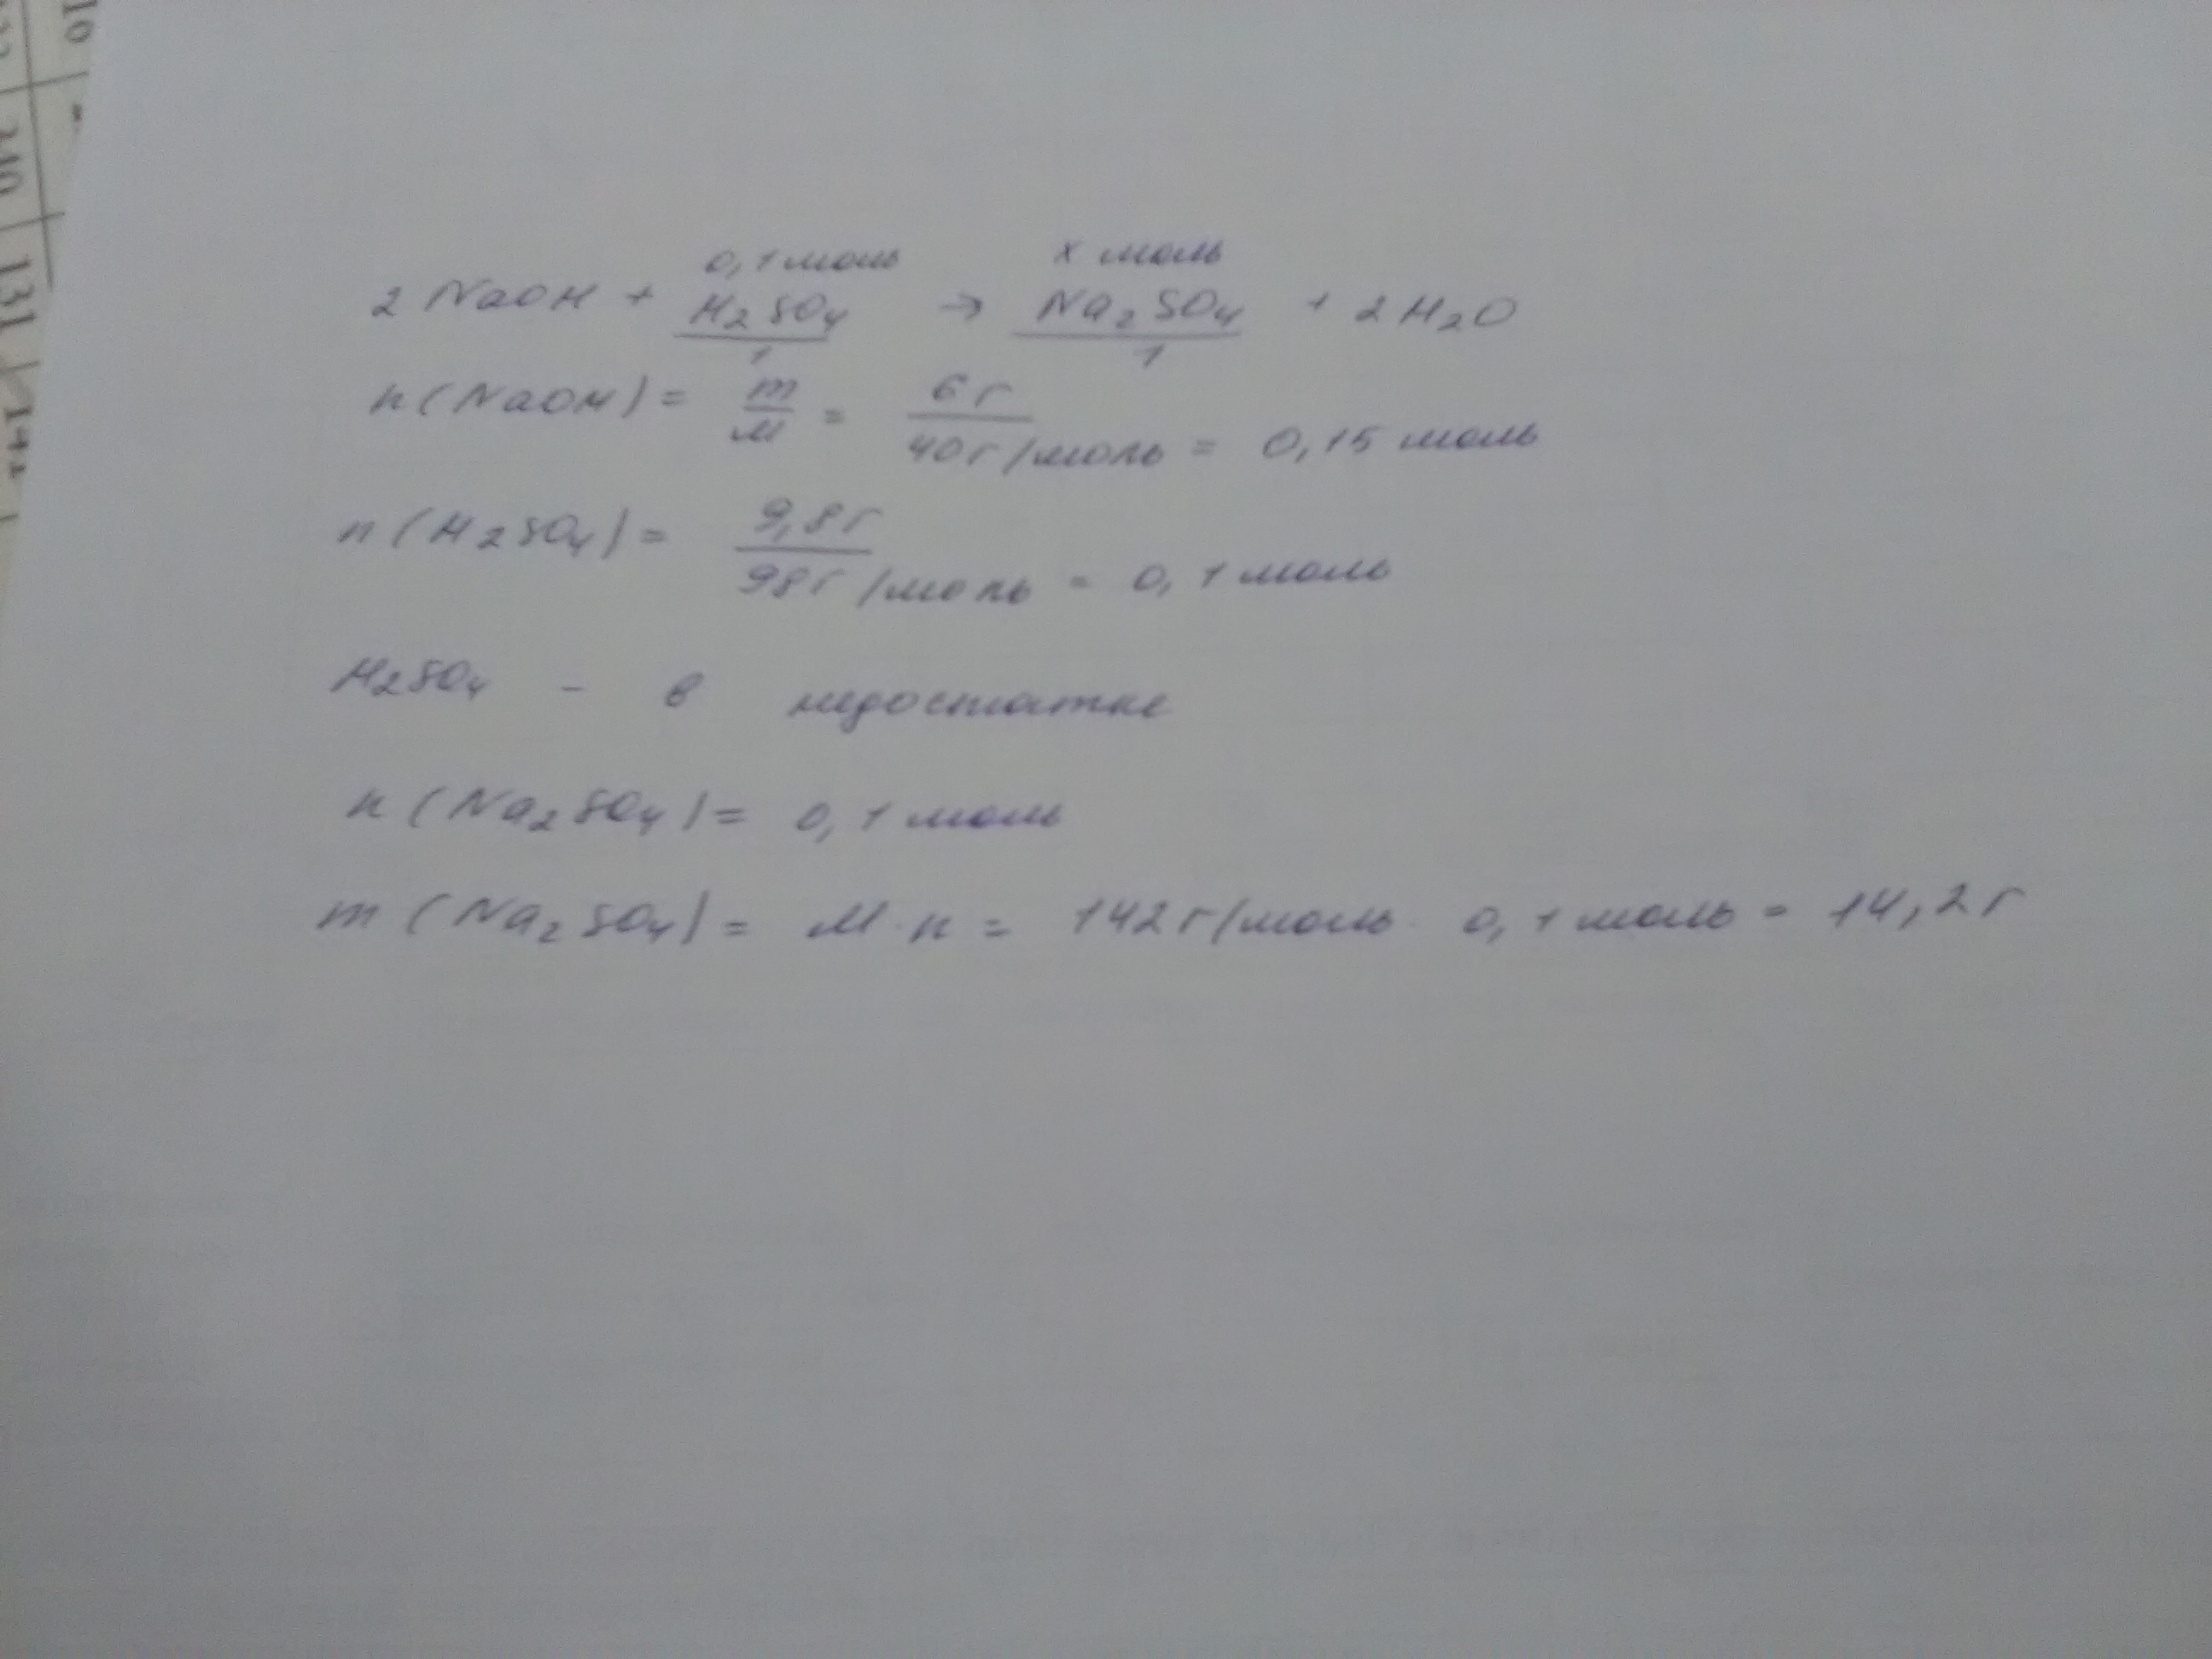 0,1 моль x моль
2 NaOH + H2SO4 → Na2SO4 + 2 H2O
1 1
n (NaOH) = m/M = 6 г/40 г/моль = 0,15 моль
n (H2SO4) = 9,8 г/98 г/моль = 0,1 моль
H2SO4 - в недостатке
n (Na2SO4) = 0,1 моль
m (Na2SO4) = M · n = 142 г/моль · 0,1 моль = 14,2 г